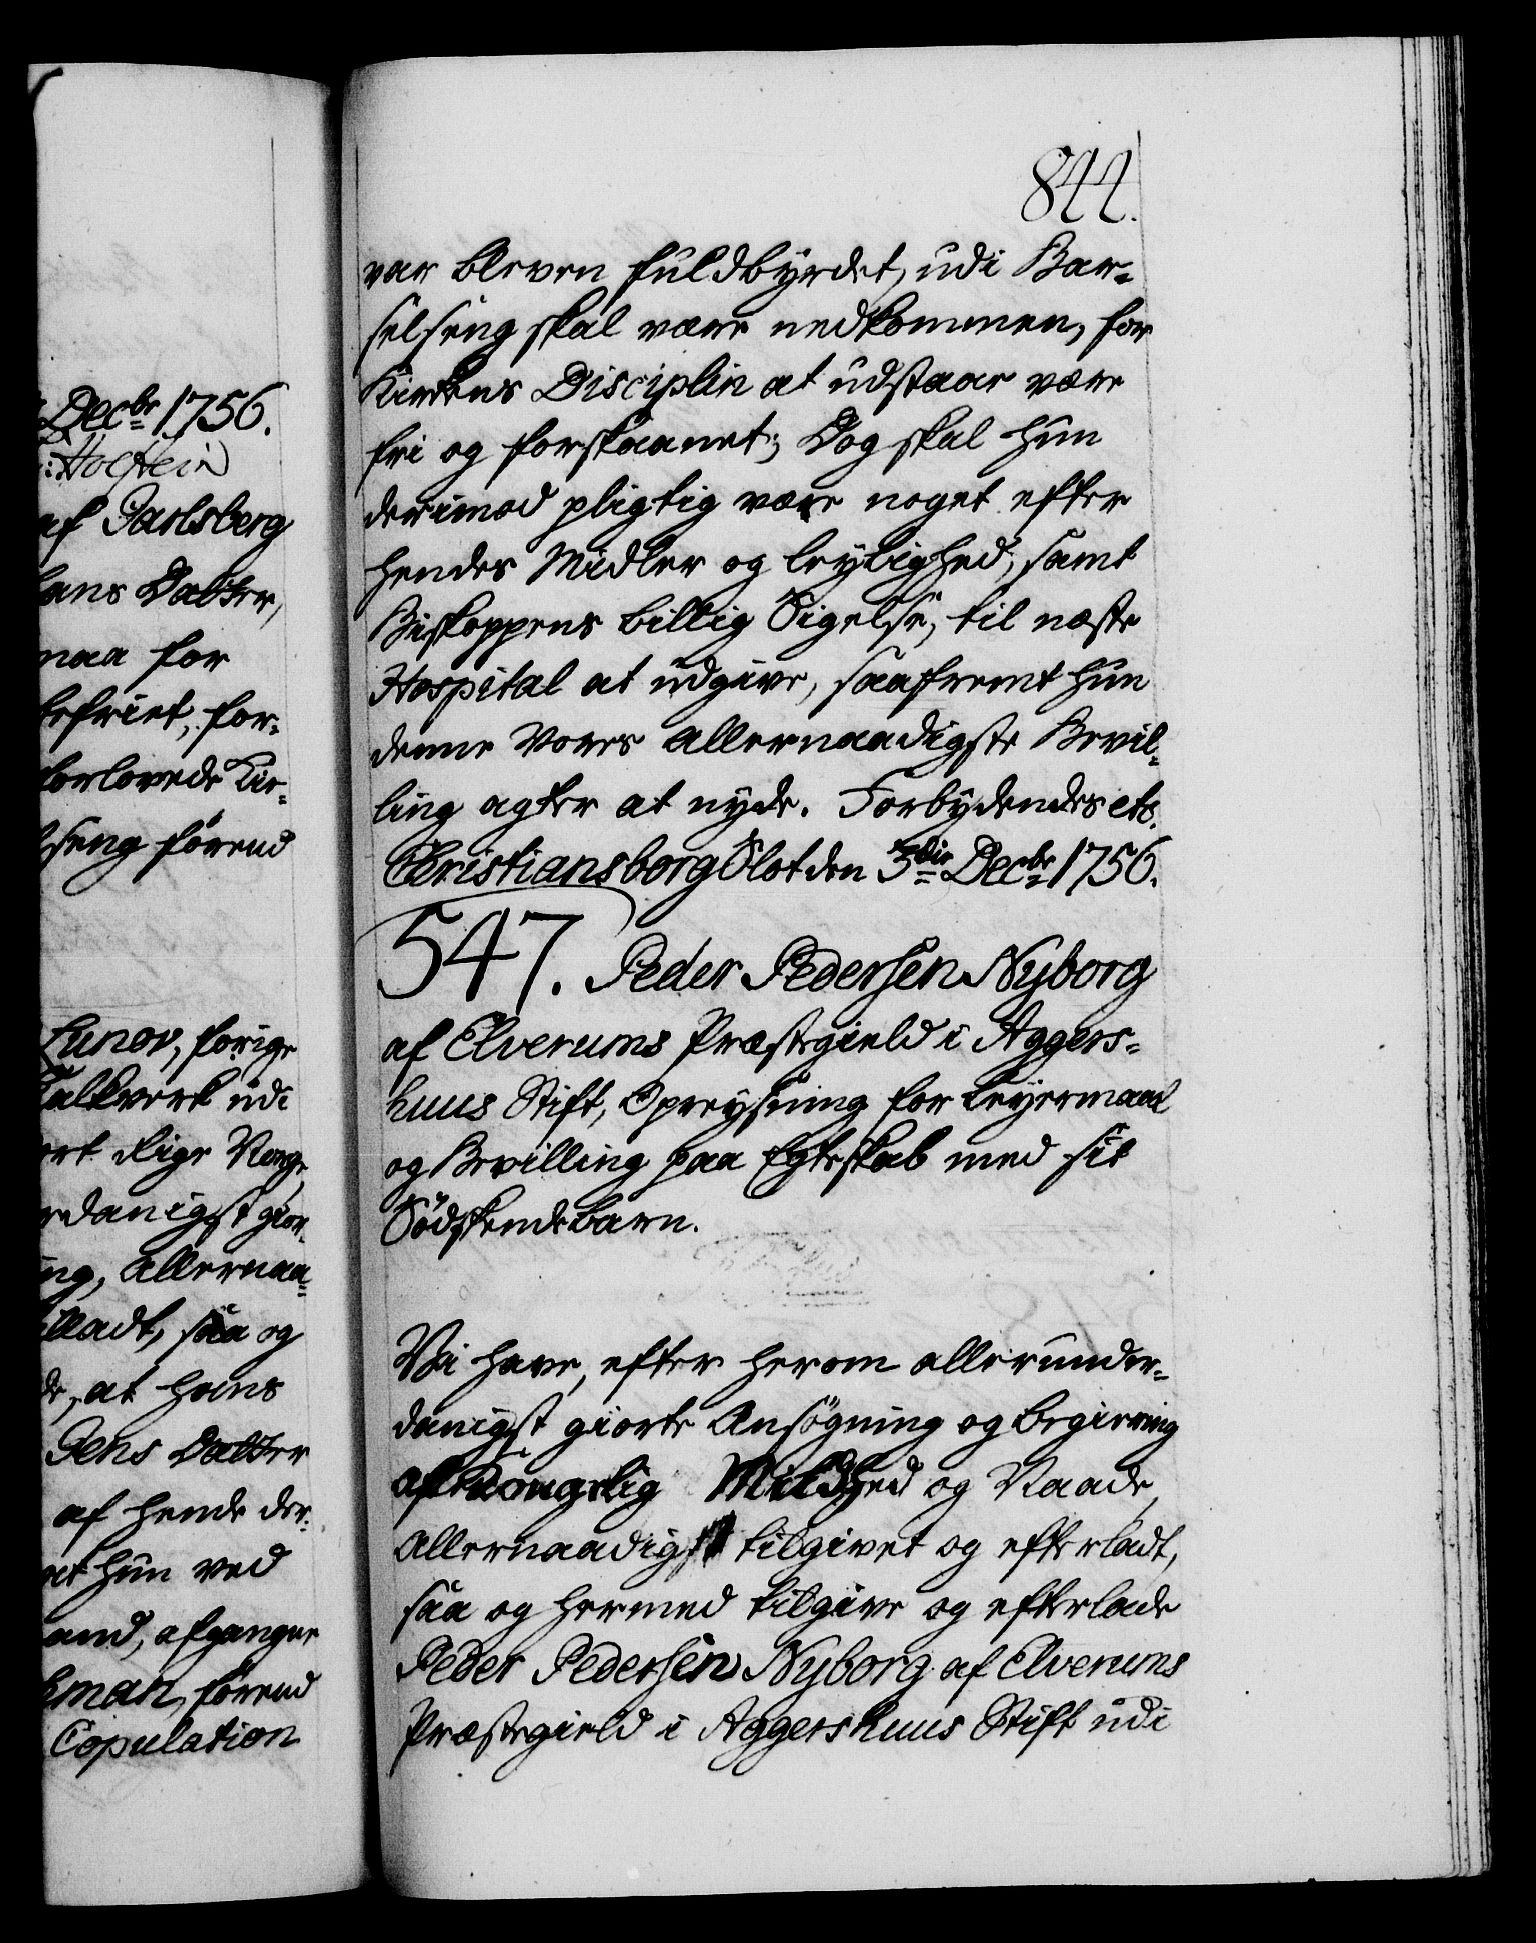 Decbr 1756.
Holstein
af Jarlsberg
hans Datter,
maa for
befriet, for-
forlovede Kir-
seng förend
Lunov, forige
Kalkverk udi
vort Rige Norge,
underdanigst gior-
ing, Allernaa-
tilladt, saa og
at hans
Jens Datter
af hende der-
at hun ved
mand, afgangne
man, förend
Copulation
844.
var bleven fuldbyrdet, udi Bar-
selseng skal være nedkommen, for
Kirkens Disciplin at udstaae være
fri og forskaanet; Dog skal hun
derimod pligtig være noget efter
hendes Midler og leylighed, samt
Biskoppens billig Sigelse, til næste
Hospital at udgive, saafremt hun
denne Vores allernaadigste Bevil-
ling agter at nyde. Forbydendes etc.
Christiansborg Slot den 3die Decbr 1756.
547. Peder Pedersen Nyborg
af Elverums Præstegield i Aggers-
huus Stift, Opreysning for leyermaal
og Bevilling paa Egteskab med sit
Södskendebarn.
Vi have, efter herom allerunder-
danigst giorte Ansögning og begiering
af Kongelig Mildhed og Naade,
Allernaadigst tilgivet og efterladt,
saa og hermed tilgive og efterlade
Peder Pedersen Nyborg af Elverums
Præstegield i Aggershuus Stift udi